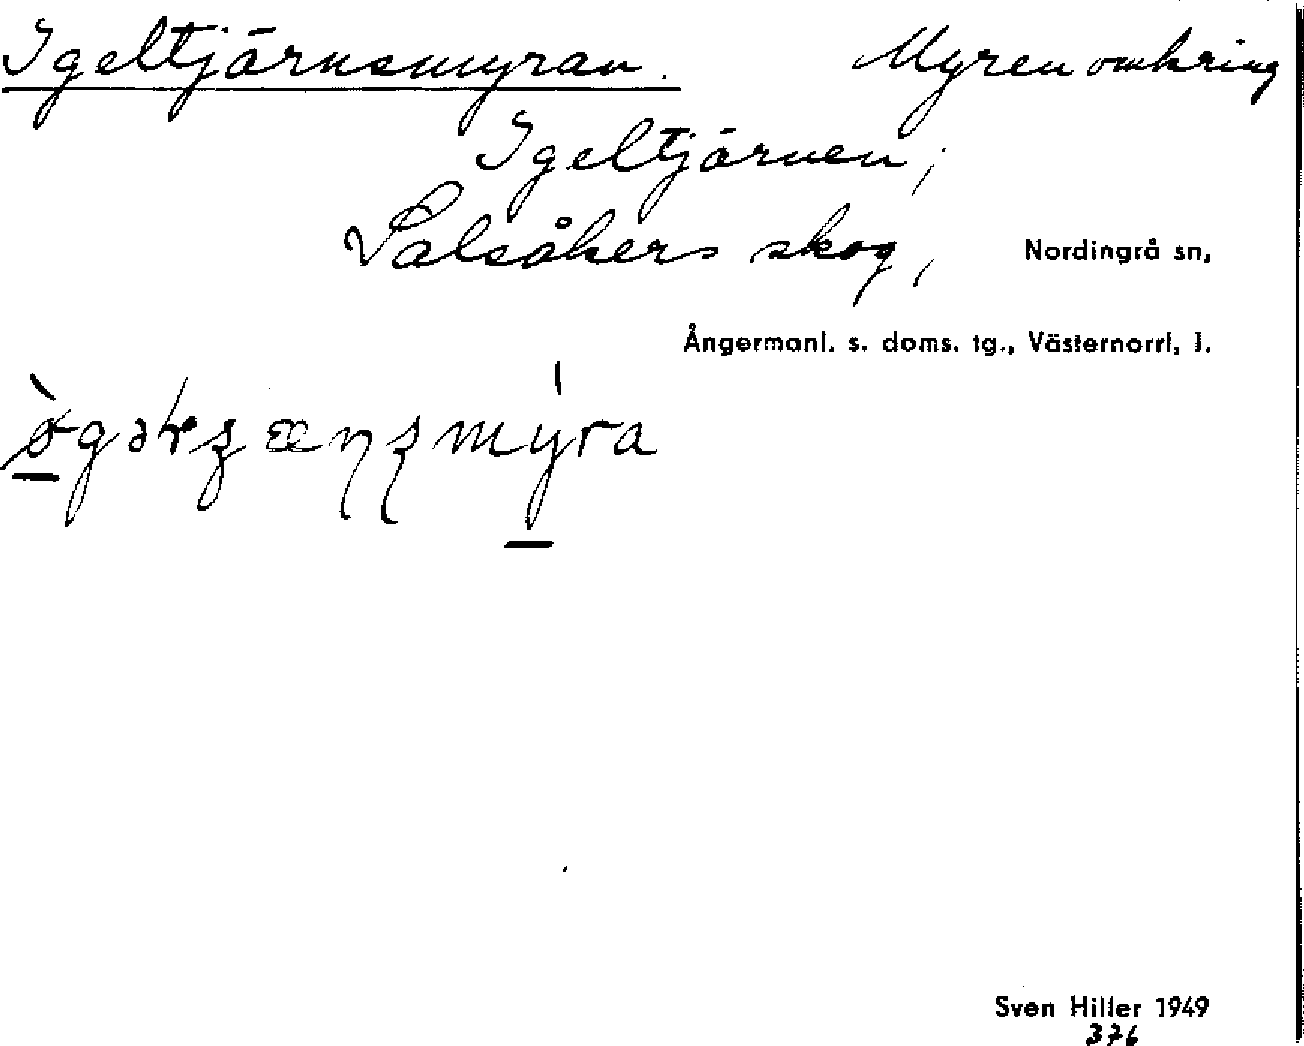 Igeltjärnsmyran. Myren omkring
Igeltjärnen,
Salsåkers skog, Nordingrå sn,
Ångermanl. s. doms. tg., Västernorrl. l.
Sven Hiller 1949
376